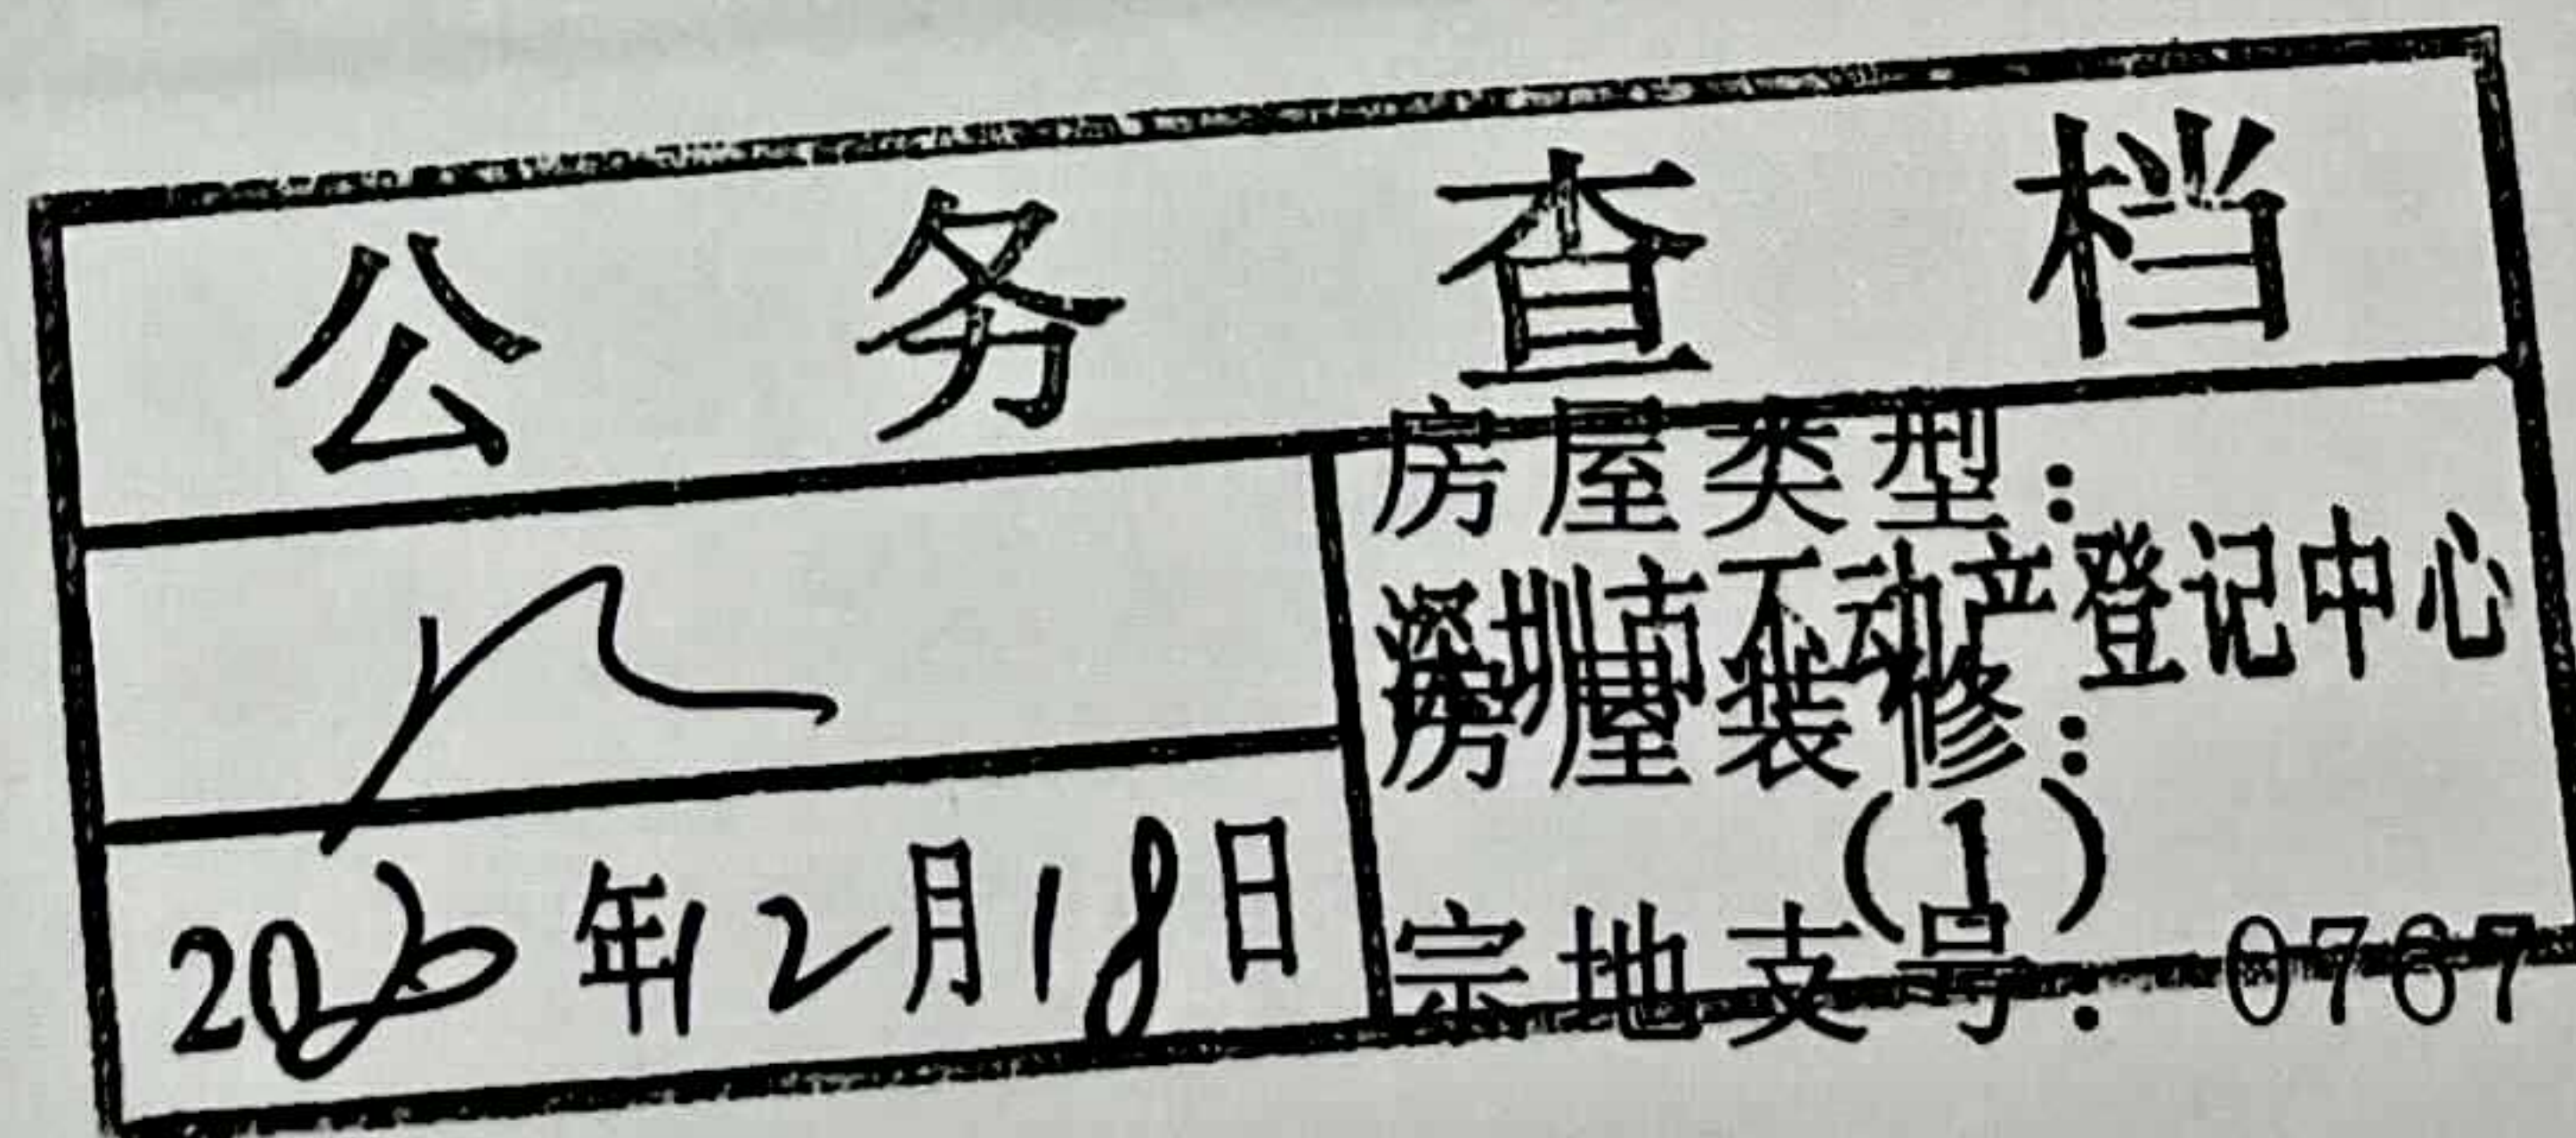 公务查档
房屋类型：
深圳市不动产登记中心
房屋装修：
(1)
2020年12月18日
宗地支号：0767